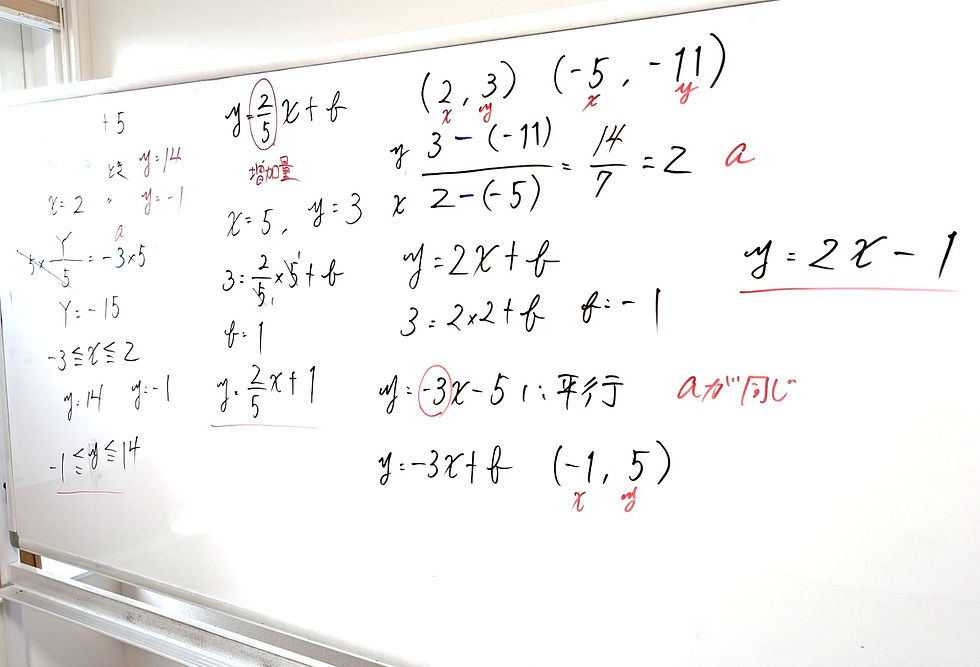 +5
とき y=14
x=2 〃 y=-1
a
5× Y/5 = -3×5
Y=-15
-3≦x≦2
y=14 y=-1
-1≦y≦14
y=2/5x+b
増加量
x=5, y=3
3=2/5×5+b
b=1
y=2/5x+1
(2, 3) (-5, -11)
x y x y
y 3-(-11) / x 2-(-5) = 14/7 = 2 a
y=2x+b
3=2×2+b b=-1
y=2x-1
y=-3x-5に平行 aが同じ
y=-3x+b (-1, 5)
x y